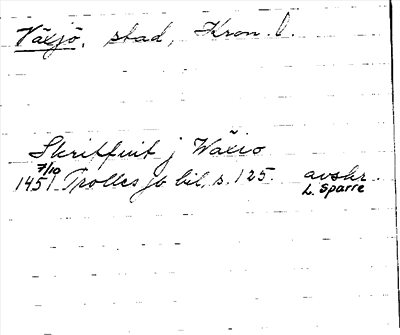 Växjö, stad, Kron. l.
Skritfuit j Wäxio
7/10
1451 Trolles jb bil, s. 125. avskr.
L. Sparre